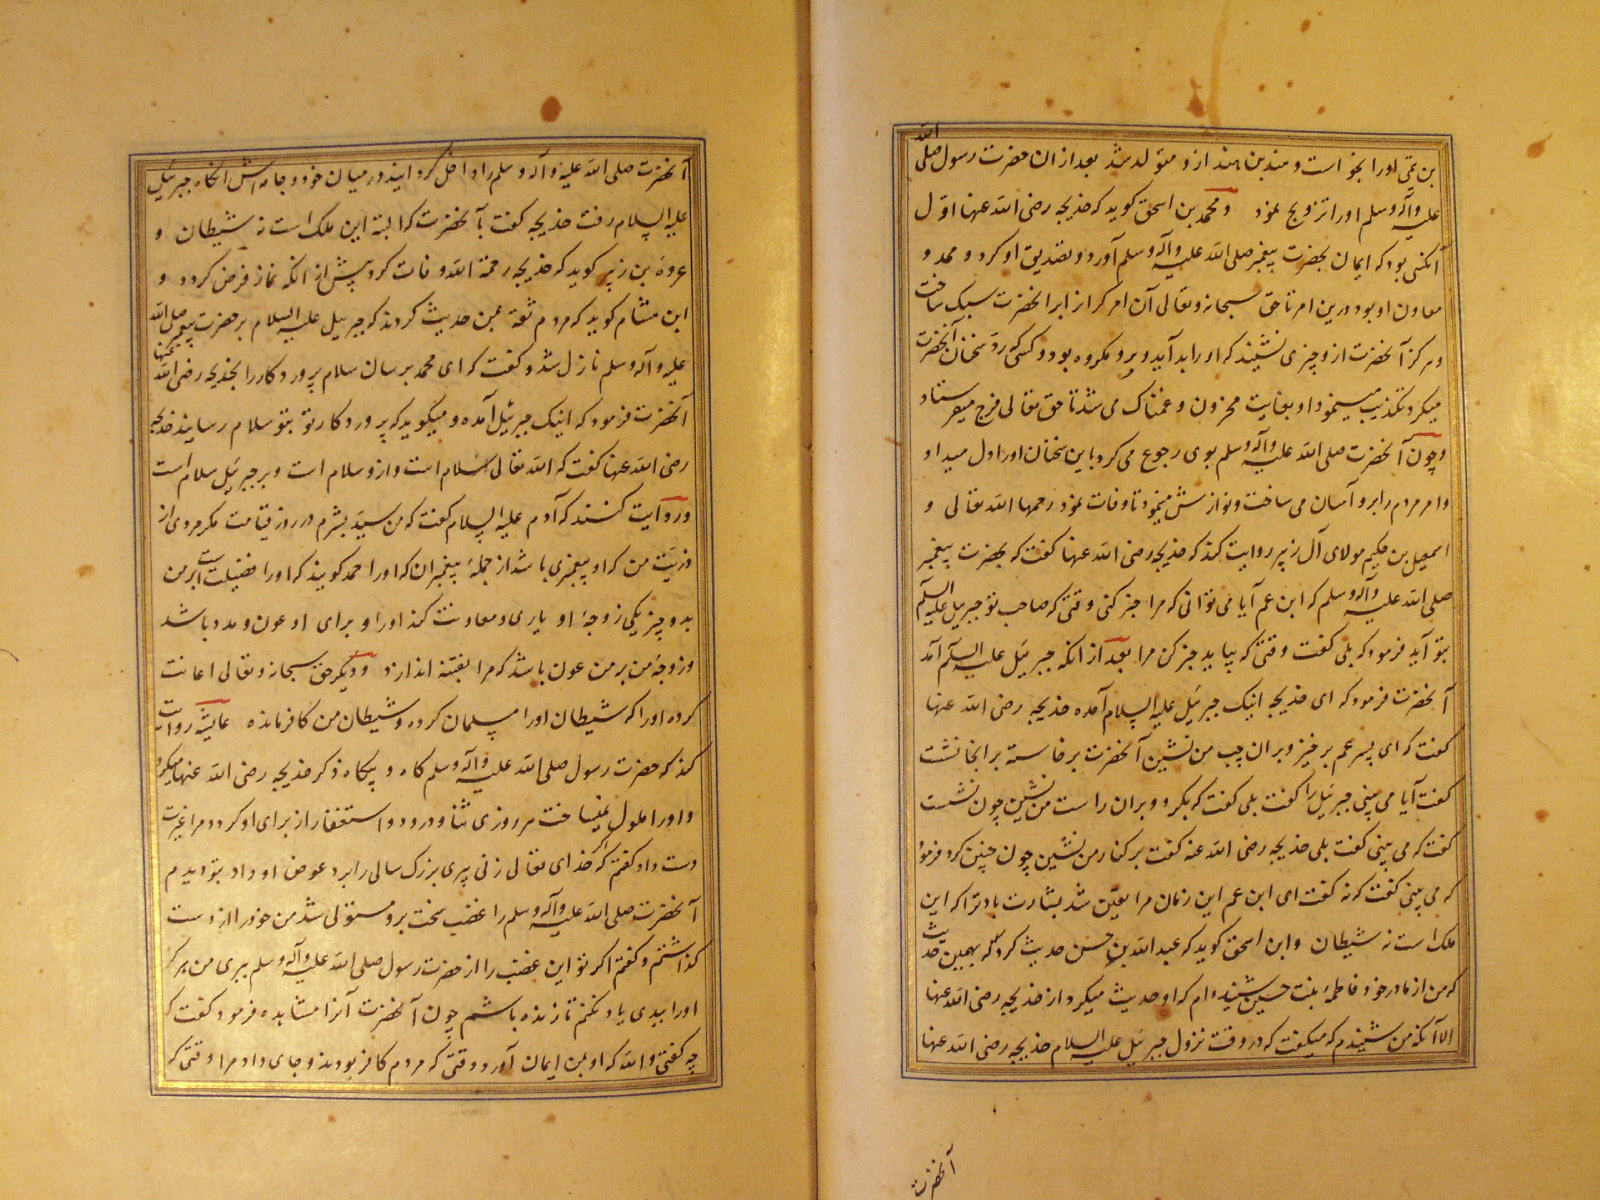 بن تمیمی اورا بخواست و هند بن هند ازو متولد شد بعد ازان حضرت رسول صلی الله
علیه وآله وسلم اورا تزویج نمود و محمد بن اسحق کوید که خدیجه رضی الله عنها اول
آنکسی بود که ایمان بحضرت پیغمبر صلی الله علیه وآله وسلم آورد و تصدیق او کرد و ممد و
معاون او بود درین امر تا حق سبحانه وتعالی آن امر کران را بر آنحضرت سبک ساخت
و هرکز آنحضرت ازو چیزی نشنید که اورا بد آید و برو مکروه بود و کسی که رد سخنان آنحضرت
میکرد و تکذیب مینمود او بغایت محزون و غمناک می شد تا حق تعالی فرج میفرستاد
و چون آنحضرت صلی الله علیه وآله وسلم بوی رجوع می کرد باین سخنان اورا دل میداد
و امر مردم را برو آسان می ساخت و نوازش مینمود تا وفات نمود رحمها الله تعالی و
اسمعیل بن حکیم مولای آل زبیر روایت کند که خدیجه رضی الله عنها کفت که بحضرت پیغمبر
صلی الله علیه وآله وسلم که ابن عم آیا می توانی که مرا خبر کنی وقتی که صاحب تو جبریل علیه السلم
بتو آید فرمود که بلی کفت وقتی که بیاید خبر کن مرا بعد از انکه جبرئیل علیه السلم آمد
آنحضرت فرمود که ای خدیجه اینک جبرئیل علیه السلام آمده خدیجه رضی الله عنها
کفت که ای پسر عم برخیز و بران چپ من نشین آنحضرت برخاسته برانجا نشست
کفت آیا می بینی جبرئیل را کفت بلی کفت که بکرد و بران راست من نشین چون نشست
کفت که می بینی کفت بلی خدیجه رضی الله عنه کفت بر کنار من نشین چون چنین کرد فرمود
که می بینی کفت که نه کفت ای ابن عم این زمان مرا یقین شد بشارت باد ترا که این
ملک است نه شیطان و ابن اسحق کوید که عبد الله بن حسن حدیث کرد که بهمین حدیث
که من از مادر خود فاطمه بنت حسین شنیده ام که او حدیث میکرد از خدیجه رضی الله عنها
الا آنکه من شنیدم که میکفت که در وقت نزول جبرئیل علیه السلام خدیجه رضی الله عنها
آنحضرت
آنحضرت صلی الله علیه وآله وسلم را داخل کردانید در میان خود و جامه اش انکاه جبرئیل
علیه السلام رفت خدیجه کفت با آنحضرت که البته این ملک است نه شیطان و
عروه بن زبیر کوید که خدیجه رحمة الله وفات کرد پیش از انکه نماز فرض کردد و
ابن هشام کوید که مردم ثقه بمن حدیث کردند که جبرییل علیه السلام بر حضرت پیغمبر صلی الله
علیه وآله وسلم نازل شد و کفت که ای محمد برسان سلام پروردکار را بخدیجه رضی الله عنها
آنحضرت فرمود که اینک جبرئیل آمده و میکوید که پروردکار تو بتو سلام رسانید خدیجه
رضی الله عنها کفت که الله تعالی سلام است و ازو سلام است و بر جبرئیل سلام است
و روایت کنند که آدم علیه السلام کفت که من سید بشرم در روز قیامت مکر مردی از
ذریت من که او پیغمبری باشد از جمله پیغمبران که اورا احمد کویند که اورا فضیلت است بر من
بدو چیز یکی زوجه او یاری و معاونت کند اورا و برای او عون و مدد باشد
و زوجه من بر من عون باشد که مرا بفتنه اندازد و دیکر حق سبحانه وتعالی اعانت
کرده اورا که شیطان اورا مسلمان کرده و شیطان من کافر مانده عایشه روایت
کند که حضرت رسول صلی الله علیه وآله وسلم کاه و بیکاه ذکر خدیجه رضی الله عنها میکرد
و اورا ملول نمیساخت هر روزی ثنا و درود و استغفار از برای او کرد و مرا غیرت
دست داد کفتم که خدای تعالی زنی پیری بزرک سالی را برد عوض او داد بتو دیدم
آنحضرت صلی الله علیه وآله وسلم را غضب سخت برو مستولی شد من خود را از دست
کذاشتم و کفتم اکر تو این غضب را از حضرت رسول صلی الله علیه وآله وسلم ببری من هرکز
اورا ببدی یاد نکنم تا زنده باشم چون آنحضرت آنرا مشاهده فرمود کفت که
چه کفتی والله که او بمن ایمان آورد وقتی که مردم کافر بودند و جای داد مرا وقتی که